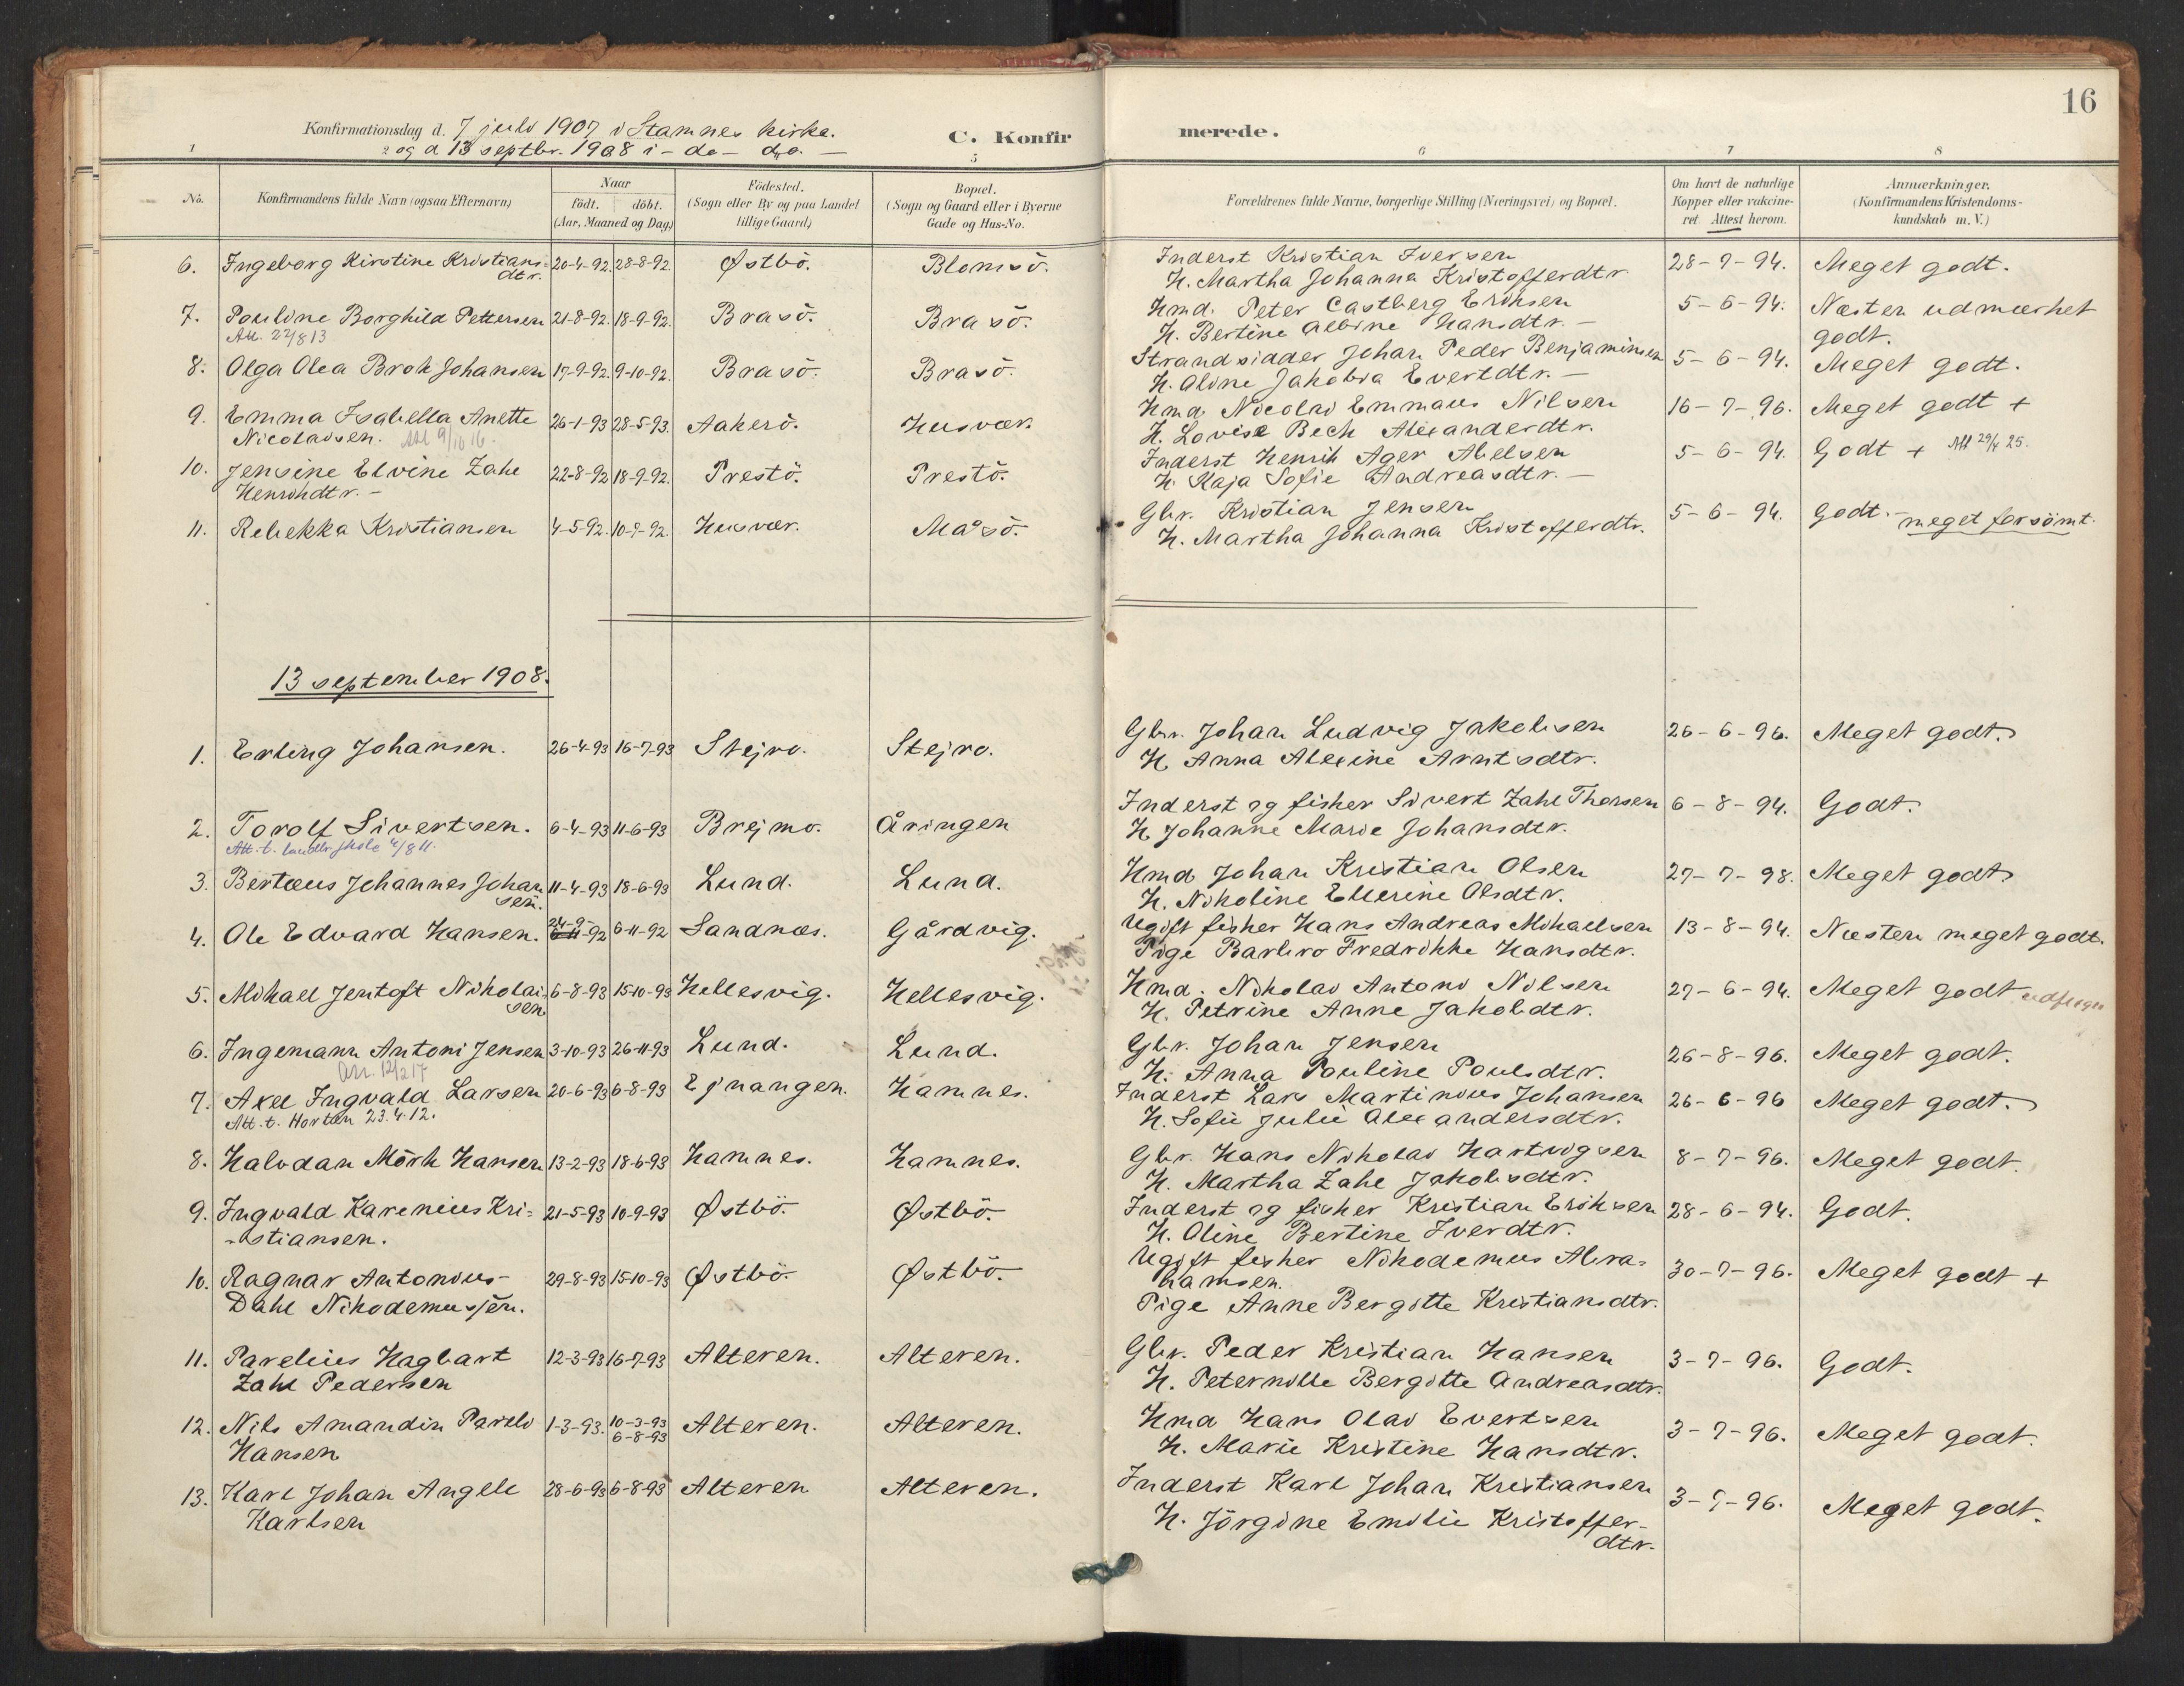 16
Konfirmationsdag d. 7 juli 1907 i Stamnes kirke.
og d 13 septbr. 1908 i - do - do. -
C. Konfirmerede.
1 2 5 6 7 8
No.
Konfirmandens fulde Navn (ogsaa Efternavn)
Naar
födt. döbt.
(Aar, Maaned og Dag)
Födested.
(Sogn eller By og paa Landet
tillige Gaard)
Bopæl.
(Sogn og Gaard eller i Byerne
Gade og Hus-No.
Forældrenes fulde Navne, borgerlige Stilling (Næringsvei) og Bopæl.
Om havt de naturlige
Kopper eller vakcine-
ret. Attest herom.
Anmærkninger.
(Konfirmandens Kristendoms-
kundskab m. V.)
6. Ingeborg Kirstine Kristians- 20-4-92. 28-8-92. Østbö. Blomsö. Inderst Kristian Iversen 28-7-94. Meget godt.
dtr. H. Martha Johanna Kristofferdtr
7. Pauline Borghild Pettersen 21-8-92. 18-9-92. Brasö. Brasö. Hmd. Peter Castberg Eriksen 5-6-94. Næsten udmærket
Att. 22/8 13 H. Bertine Albine Hansdtr. - godt.
8. Olga Olea Brok Johansen 17-9-92. 9-10-92. Brasö. Brasö. Strandsidder Johan Peder Benjaminsen 5-6-94. Meget godt.
H. Aline Jakobia Evertdtr. -
9. Emma Isabella Anette 26-1-93 28-5-93. Aakerö. Husvær. Hmd. Nicolai Emmaus Nilsen 16-7-96. Meget godt +
Nicolaisen. Att 9/10 16. H. Lovise Bech Alexanderdtr.
10. Jensine Elvine Zahl 22-8-92 18-9-92. Prestö. Prestö. Inderst Henrik Ager Abelsen 5-6-94. Godt + Att 29/4 25.
Henrikdtr. - H. Kaja Sofie Andreasdtr. -
11. Rebekka Kristiansen 4-5-92. 10-7-92. Husvær. Måsö. Gbr. Kristian Jensen 5-6-94. Godt. - meget forsömt.
H. Martha Johanna Kristofferdtr.
13 september 1908.
1. Erling Johansen. 26-4-93 16-7-93 Stejro. Stejro. Gbr. Johan Ludvig Jakobsen 26-6-96. Meget godt.
H. Anna Alexine Arntsdtr.
2. Torolf Sivertsen. 6-4-93 11-6-93 Brejmo. Åringen Inderst og fisker Sivert Zahl Thorsen 6-8-94. Godt.
Att. t. landbr.skole 4/8 11. H. Johanne Marie Johansdtr.
3. Bertæus Johannes Johan 11-4-93 18-6-93 Lund. Lund. Hmd Johan Kristian Olsen 27-7-98. Meget godt
sen. H. Nikoline Ellerine Olsdtr.
4. Ole Edvard Hansen. 24-9-92 6-11-92 Sandnæs. Gårdvig. Ugift fisker Hans Andreas Mikaelsen 13-8-94. Næsten meget godt.
Pige Barbro Fredrikke Hansdtr.
5. Mikael Jentoft Nikolai- 6-8-93 15-10-93 Hellesvig. Hellesvig. Hmd. Nikolai Antoni Nilsen 27-6-94. Meget godt
sen. H. Petrine Anne Jakobdtr.
6. Ingemann Antoni Jensen 3-10-93 26-11-93 Lund. Lund. Gbr. Johan Jensen 26-8-96. Meget godt.
12/2 17 H. Anna Pauline Paulsdtr.
7. Axel Ingvald Larsen 20-6-93 6-8-93 Ejnangen. Hamnes. Inderst Lars Martinius Johansen 26-6-96 Meget godt.
Att. t. Horten 23.4.12. H. Sofie Julie Alexandersdtr.
8. Halvdan Mörk Hansen 13-2-93 18-6-93 Hamnes. Hamnes. Gbr. Hans Nikolai Hartvigsen 8-7-96. Meget godt.
H. Martha Zahl Jakobsdtr.
9. Ingvald Karenius Kri- 21-5-93 10-9-93 Østbö. Østbö. Inderst og fisker Kristian Eriksen 28-6-94. Godt.
-stiansen. H. Oline Bertine Iverdtr.
10. Ragnar Antonius- 29-8-93 15-10-93 Østbö. Østbö. Ugift fisker Nikodemus Abra- 30-7-96. Meget godt +
Dahl Nikodemussen. hamsen.
Pige Anne Bergitte Kristiansdtr.
11. Parelius Hagbart 12-3-93 16-7-93 Alteren. Alteren. Gbr. Peder Kristian Hansen 3-7-96. Godt.
Zahl Pedersen H. Peternille Bergitte Andreasdtr.
12. Nils Amandin Pareli 1-3-93. 10-3-93 Alteren. Alteren. Hmd Hans Olai Evertsen 3-7-96. Meget godt.
Hansen 6-8-93 H. Marie Kristine Hansdtr.
13. Karl Johan Angell 28-6-93 6-8-93 Alteren Alteren. Inderst Karl Johan Kristiansen 3-7-96. Meget godt.
Karlsen H. Jörgine Emilie Kristoffer-
dtr.